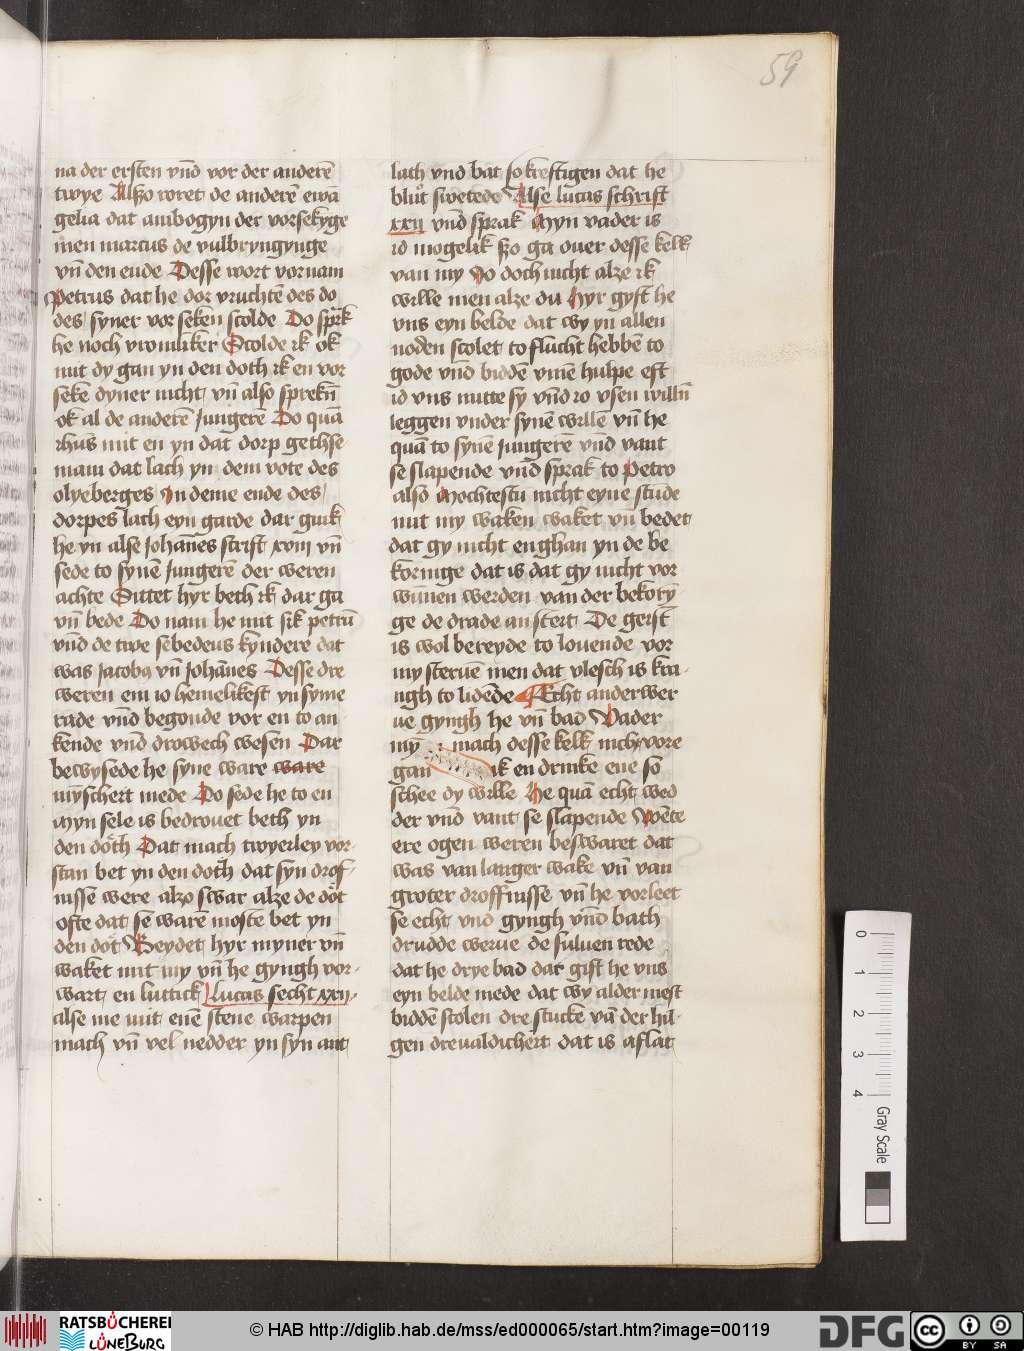 59
na der ersten vnd vor der anderē
twye Alßo roret de anderē ewā
gelia dat ambogyn der vorsekyge
men marcus de vulbryngynge
vn̄ den ende Desse wort vornam
Petrus dat he dor vruchtē des do
des syner vorseken scolde Do sprak
he noch vromliker Scolde ik ok
mit dy gan yn den doth ik en vor
seke dyner nicht vn̄ also sprekn̄
ok al de anderē Jungerē Do quā
Ihus mit en yn dat dorp gethse
mani dat lach yn dem vote des
olyeberges In deme ende des
dorpes lach eyn garde dar gink
he yn alse Johānes scrift xviii vn̄
sede to synē Jungerē der weren
achte Sittet hyr beth ik dar ga
vn̄ bede Do nam he mit sik petrū
vnd de twe sebedeus kyndere dat
was Jacobus vn̄ Johānes Desse dre
weren em io hemelikest yn syme
rade vnd begonde vor en to an
kende vnd drowech wesen Dar
bewysede he syne ware ware
mynschert mede Do sede he to en
Myn sele is bedrouet beth yn
den doth Dat mach twyerley vor
stan bet yn den doth dat syn drof
nisse were alzo swar alze de dot
ofte dat se warē moste bet yn
den dot Beydet hyr myner vn̄
waket mit my vn̄ he gyngh vor
wart en luttick Lucas secht xxii
alse me mit enē stene warpen
mach vn̄ vel nedder yn syn ant
lach vnd bat so krestigen dat he
blut swetede Alse lucas schrift
xxii vnd sprak Myn vader is
id mogelik szo ga ouer desse kelk
van my Jo doch nicht alze ik
wille men alze du Hyr gyft he
vns eyn belde dat wy yn allen
noden scolet to flucht hebbē to
gode vnd biddē vmē hulpe eft
id vns nutte sy vnd io vsen willn̄
leggen vnder synē willē vn̄ he
quā to synē Jungerē vnd vant
se slapende vnd sprak to Petro
also Mochtestu nicht eyne stude
mit my waken waket vn̄ bedet
dat gy nicht enghan yn de be
koringe dat is dat gy nicht vor
wunnen werden van der bekory
ge de drade anstert De geist
is wol bereyde to louende vor
my steruē men dat vlesch is kra
ngh to lidēde Echt anderwer
ue gyngh he vn̄ bad Vader
my mach desse kelk nicht vore
gan ik en drinke ene so
schee dy wille He quā echt wed
der vnd vant se slapende Wēte
ere ogen weren beswaret dat
was van langer wake vn̄ van
groter droffnisse vn̄ he vorleet
se echt vnd gyngh vnd bath
drudde werue de suluen rede
dat he drye bad dar gift he vns
eyn belde mede dat wy alder mest
biddē scolen dre stucke vā der hil
gen dreualdichert dat is aflat
0
1
2
3
4
Gray Scale
RATSBÜCHEREI
LÜNEBURG
© HAB http://diglib.hab.de/mss/ed000065/start.htm?image=00119
DFG
cc
BY SA